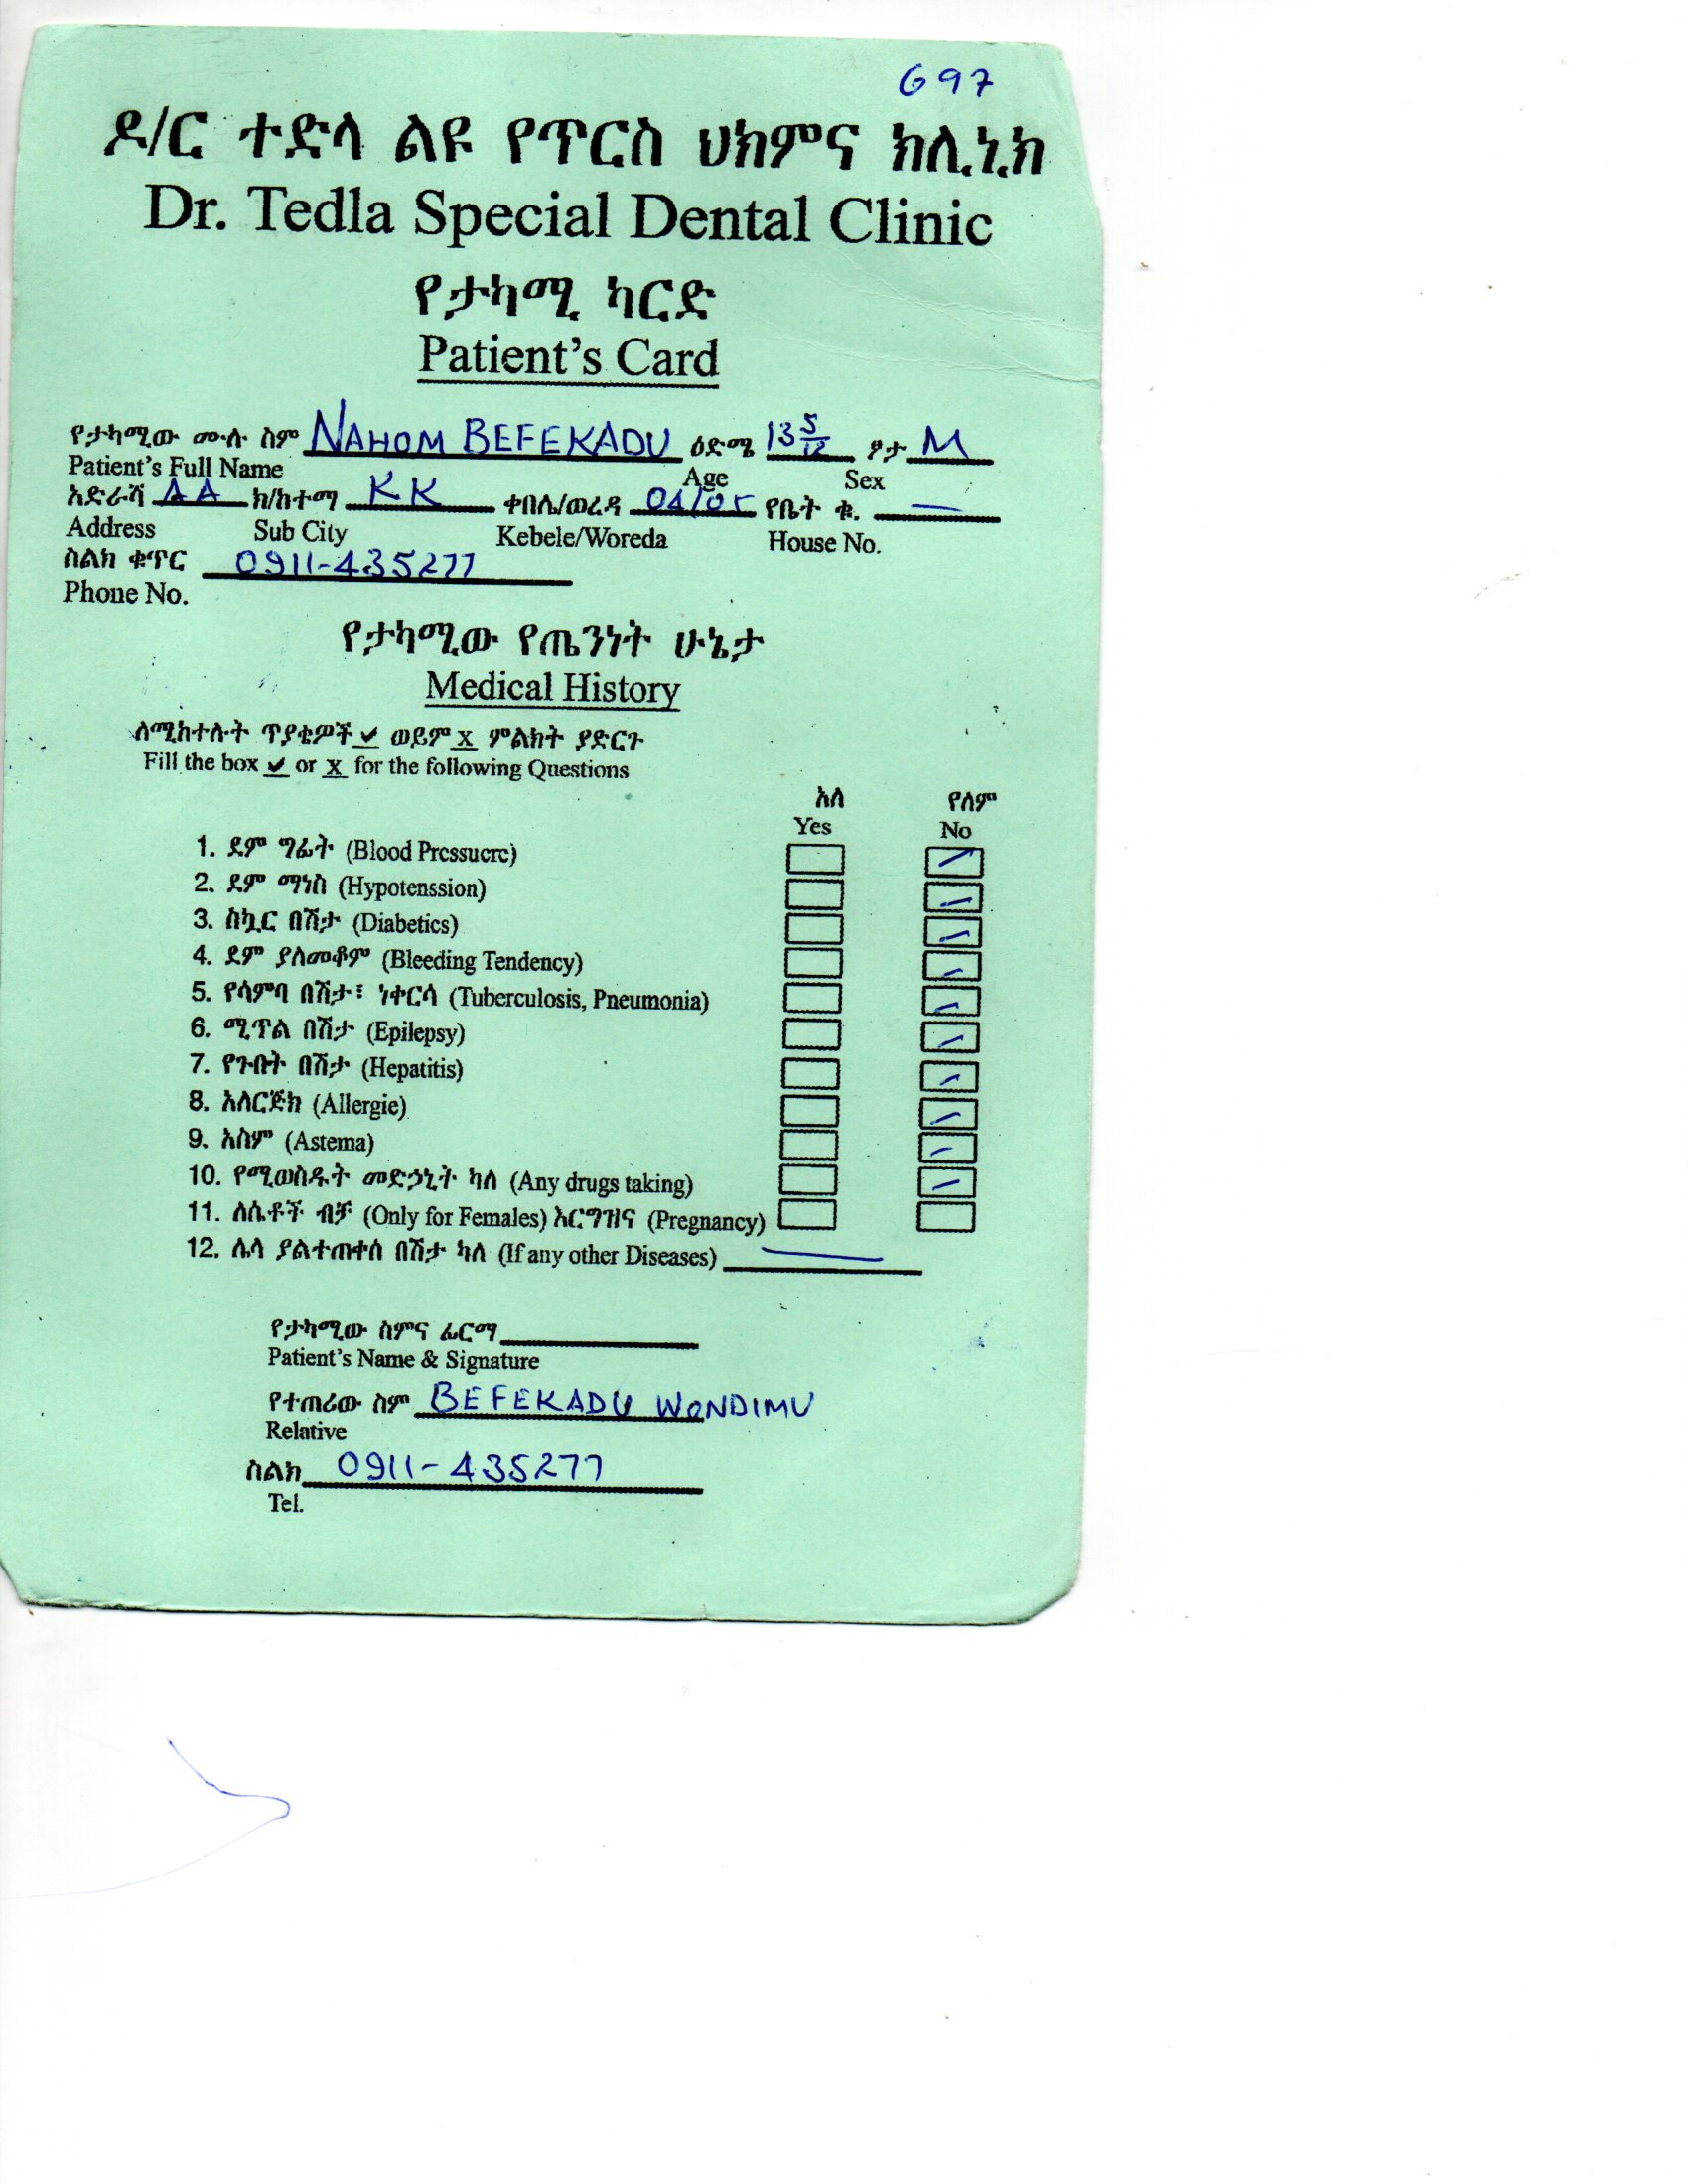 697
ዶ/ር ተድላ ልዩ የጥርስ ህክምና ክሊኒክ
Dr. Tedla Special Dental Clinic
የታካሚ ካርድ
Patient's Card
የታካሚው ሙሉ ስም NAHOM BEFEKADU ዕድሜ 13 5/12 ፆታ M
Patient's Full Name Age Sex
አድራሻ AA ክ/ከተማ KK ቀበሌ/ወረዳ 04/05 የቤት ቁ. —
Address Sub City Kebele/Woreda House No.
ስልክ ቁጥር 0911-435277
Phone No.
የታካሚው የጤንነት ሁኔታ
Medical History
ለሚከተሉት ጥያቄዎች ✔ ወይም X ምልክት ያድርጉ
Fill the box ✔ or X for the following Questions
አለ የለም
Yes No
1. ደም ግፊት (Blood Pressuere)
2. ደም ማነስ (Hypotenssion)
3. ስኳር በሽታ (Diabetics)
4. ደም ያለመቆም (Bleeding Tendency)
5. የሳምባ በሽታ፣ ነቀርሳ (Tuberculosis, Pneumonia)
6. ሚጥል በሽታ (Epilepsy)
7. የጉበት በሽታ (Hepatitis)
8. አለርጅክ (Allergie)
9. አስም (Astema)
10. የሚወስዱት መድኃኒት ካለ (Any drugs taking)
11. ለሴቶች ብቻ (Only for Females) እርግዝና (Pregnancy)
12. ሌላ ያልተጠቀሰ በሽታ ካለ (If any other Diseases) —
የታካሚው ስምና ፊርማ
Patient's Name & Signature
የተጠሪው ስም BEFEKADU WONDIMU
Relative
ስልክ 0911-435277
Tel.